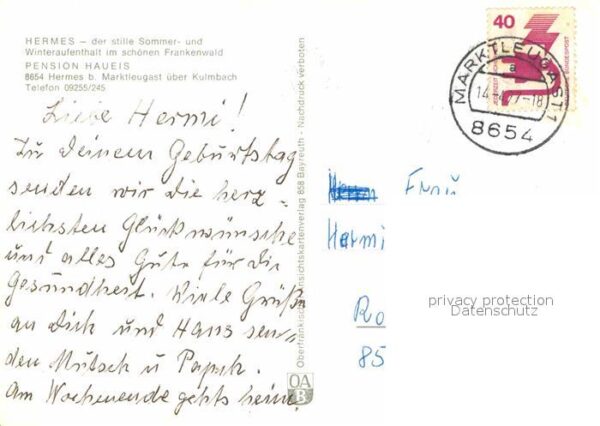 HERMES – der stille Sommer- und
Winteraufenthalt im schönen Frankenwald
PENSION HAUEIS
8654 Hermes b. Marktleugast über Kulmbach
Telefon 09255/245
Liebe Hermi!
Zu Deinem Geburtstag
senden wir die herz-
lichsten Glückwünsche
und alles Gute für die
Gesundheit. Viele Grüße
an Dich und Hans sen-
den Mutsch u
Am Wochenende gehts heim.
Oberfränkischer Ansichtskartenverlag 858 Bayreuth - Nachdruck verboten
OA
B
40
DEUTSCHE BUNDESPOST
JEDERZEIT SICHERHEIT
MARKTLEUGAST 1
a
-18
8654
Frau
Hermi
Ro
85
privacy protection
Datenschutz